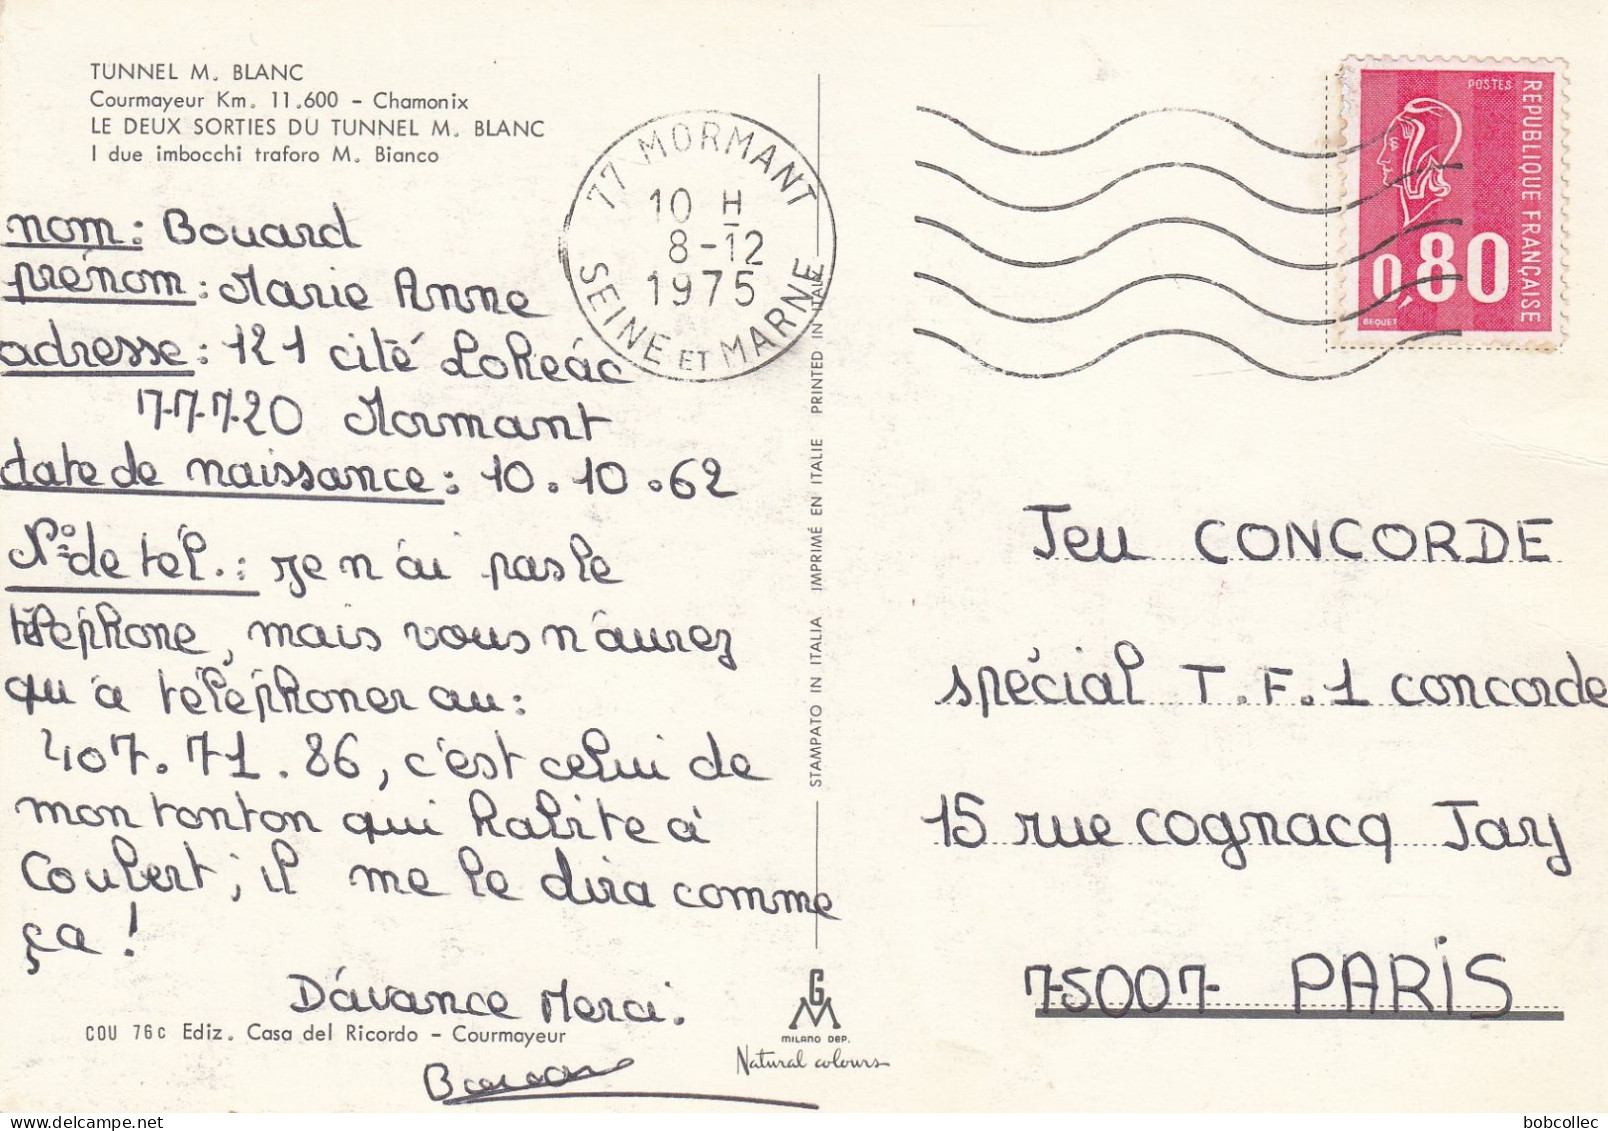 TUNNEL M. BLANC
Courmayeur Km. 11.600 - Chamonix
LE DEUX SORTIES DU TUNNEL M. BLANC
I due imbocchi traforo M. Bianco
nom: Bouard
prénom: Marie Anne
adresse: 121 cité Lohéac
77720 Mormant
date de naissance: 10.10.62
N° de tél.: Je n'ai pas le
téléphone, mais vous n'aurez
qu'à téléphoner au:
407.71.86, c'est celui de
mon tonton qui habite à
Coubert; il me le dira comme
ça!
D'avance Merci.
COU 76c Ediz. Casa del Ricordo - Courmayeur
77 MORMANT
10 H
8-12
1975
SEINE ET MARNE
STAMPATO IN ITALIA IMPRIMÉ EN ITALIE PRINTED IN ITALY
GM
MILANO DEP.
Natural colours
POSTES
REPUBLIQUE FRANÇAISE
0,80
BEQUET
Jeu CONCORDE
spécial T.F.1 concorde
15 rue Cognacq Jay
75007 PARIS
bobcollec